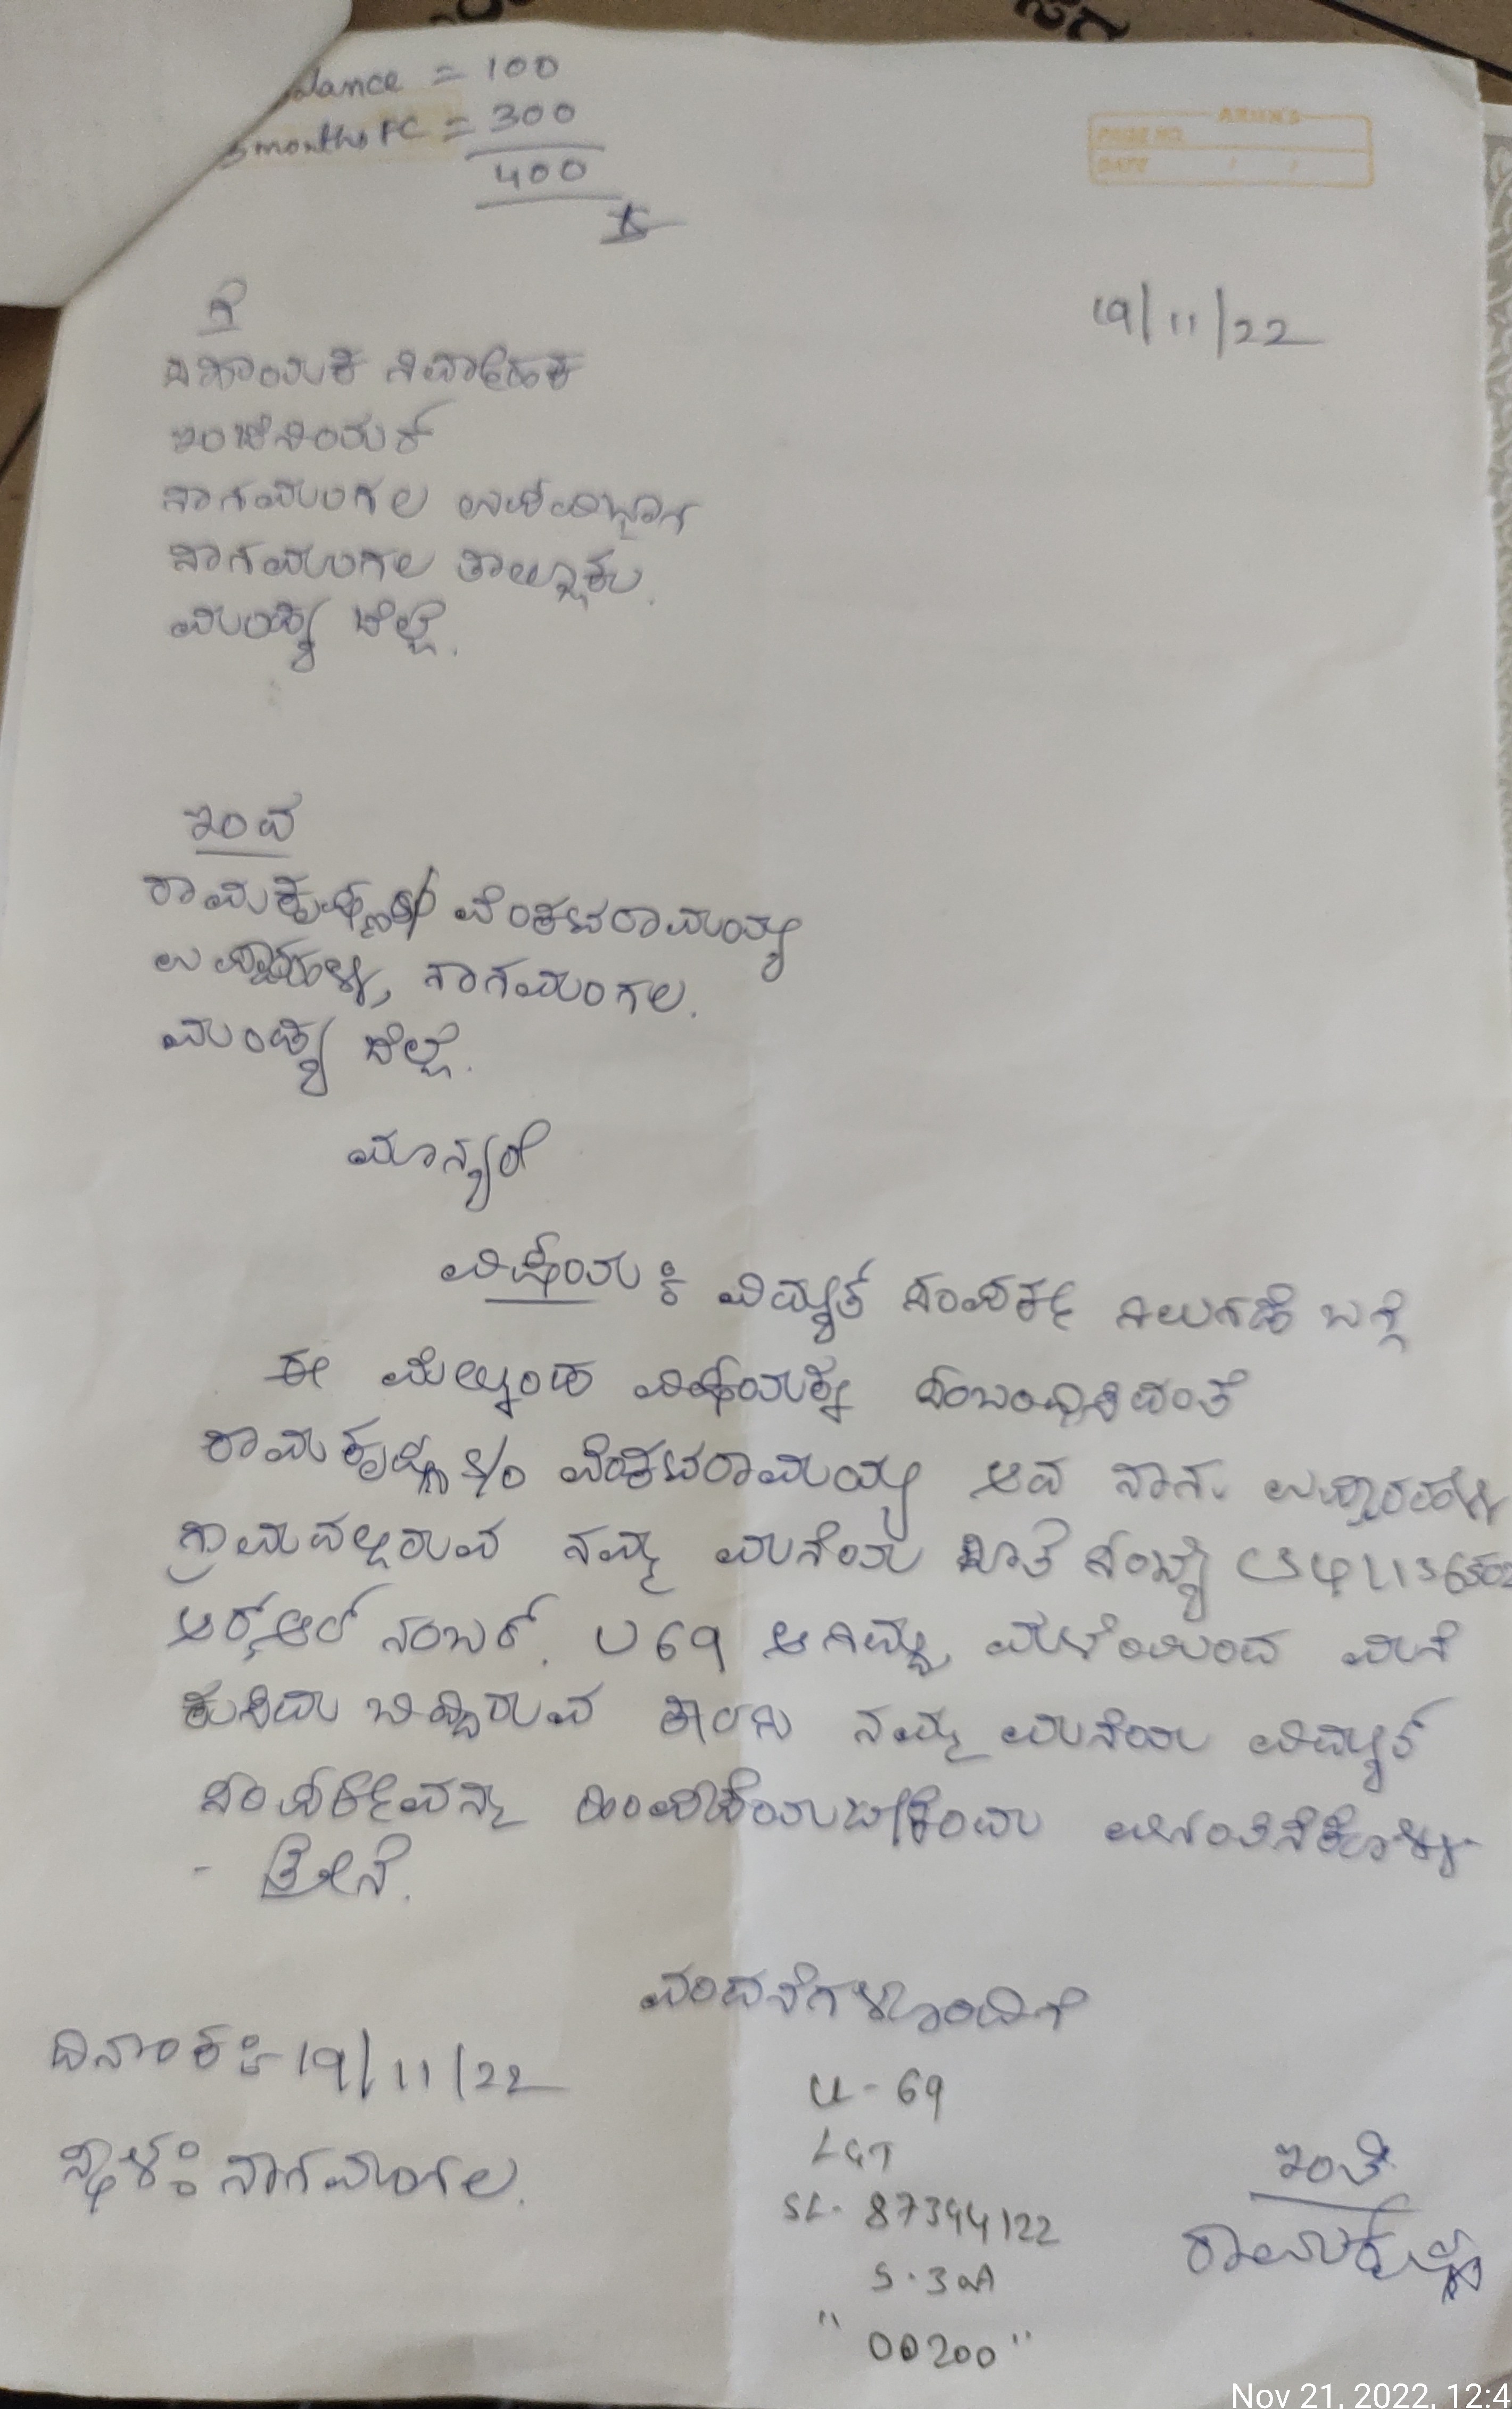 = 100
months FC = 300
400
ARUN'S
PAGE NO.
DATE / /
19/11/22
ಗೆ
ಸಹಾಯಕ ನಿರ್ವಾಹಕ
ಇಂಜಿನಿಯರ್
ನಾಗಮಂಗಲ ಉಪವಿಭಾಗ
ನಾಗಮಂಗಲ ತಾಲ್ಲೂಕು.
ಮಂಡ್ಯ ಜಿಲ್ಲೆ.
ಇಂದ
ರಾಮಕೃಷ್ಣ S/o ವೆಂಕಟರಾಮಯ್ಯ
ನಾಗಮಂಗಲ.
ಮಂಡ್ಯ ಜಿಲ್ಲೆ.
ಮಾನ್ಯರೆ
ವಿಷಯ : ವಿದ್ಯುತ್ ಸಂಪರ್ಕ ನಿಲುಗಡೆ ಬಗ್ಗೆ
ಈ ಮೇಲ್ಕಂಡ ವಿಷಯಕ್ಕೆ ಸಂಬಂಧಿಸಿದಂತೆ
ರಾಮಕೃಷ್ಣ S/o ವೆಂಕಟರಾಮಯ್ಯ ಆದ ನಾನು
ಗ್ರಾಮದಲ್ಲಿರುವ ನಮ್ಮ ಮನೆಯ ಖಾತೆ ಸಂಖ್ಯೆ
ಆರ್.ಆರ್ ನಂಬರ್. U69 ಆಗಿದ್ದು, ಮಳೆಯಿಂದ ಮನೆ
ಕುಸಿದು ಬಿದ್ದಿರುವ ಕಾರಣ ನಮ್ಮ ಮನೆಯ ವಿದ್ಯುತ್
ಸಂಪರ್ಕವನ್ನು ಹಿಂಪಡೆಯಬೇಕೆಂದು ವಿನಂತಿಸಿಕೊಳ್ಳು-
- ತ್ತೇನೆ.
ವಂದನೆಗಳೊಂದಿಗೆ
ದಿನಾಂಕ :- 19/11/22
ಸ್ಥಳ : ನಾಗಮಂಗಲ.
U - 69
L&T
SL- 87394122
S.3A
" 00200 "
ಇಂತಿ
ರಾಮಕೃಷ್ಣ
Nov 21, 2022, 12:4